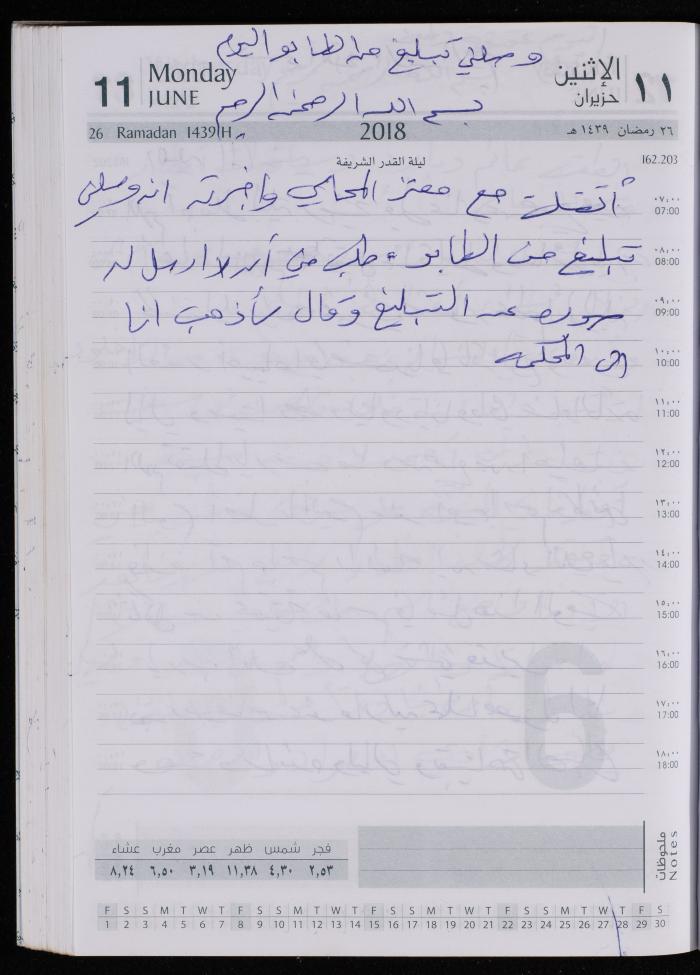 وصلني تبليغ من الطابو اليوم
11 Monday JUNE
الإثنين حزيران ١١
بسم الله الرحمن الرحيم
26 Ramadan 1439 H
2018
٢٦ رمضان ١٤٣٩ هـ
ليلة القدر الشريفة
162.203
أتصلت مع معتز المحامي واخبرته انه وصلني
٠٧:٠٠ 07:00
تبليغ من الطابو، طلب مني أن ارسل له
٠٨:٠٠ 08:00
صوره عن التبليغ وقال سأذهب انا
٠٩:٠٠ 09:00
الى المحكمه
١٠:٠٠ 10:00
١١:٠٠ 11:00
١٢:٠٠ 12:00
١٣:٠٠ 13:00
١٤:٠٠ 14:00
١٥:٠٠ 15:00
١٦:٠٠ 16:00
١٧:٠٠ 17:00
١٨:٠٠ 18:00
ملحوظات Notes
فجر شمس ظهر عصر مغرب عشاء
٢,٥٣ ٤,٣٠ ١١,٣٨ ٣,١٩ ٦,٥٠ ٨,٢٤
F S S M T W T F S S M T W T F S S M T W T F S S M T W T F S
1 2 3 4 5 6 7 8 9 10 11 12 13 14 15 16 17 18 19 20 21 22 23 24 25 26 27 28 29 30